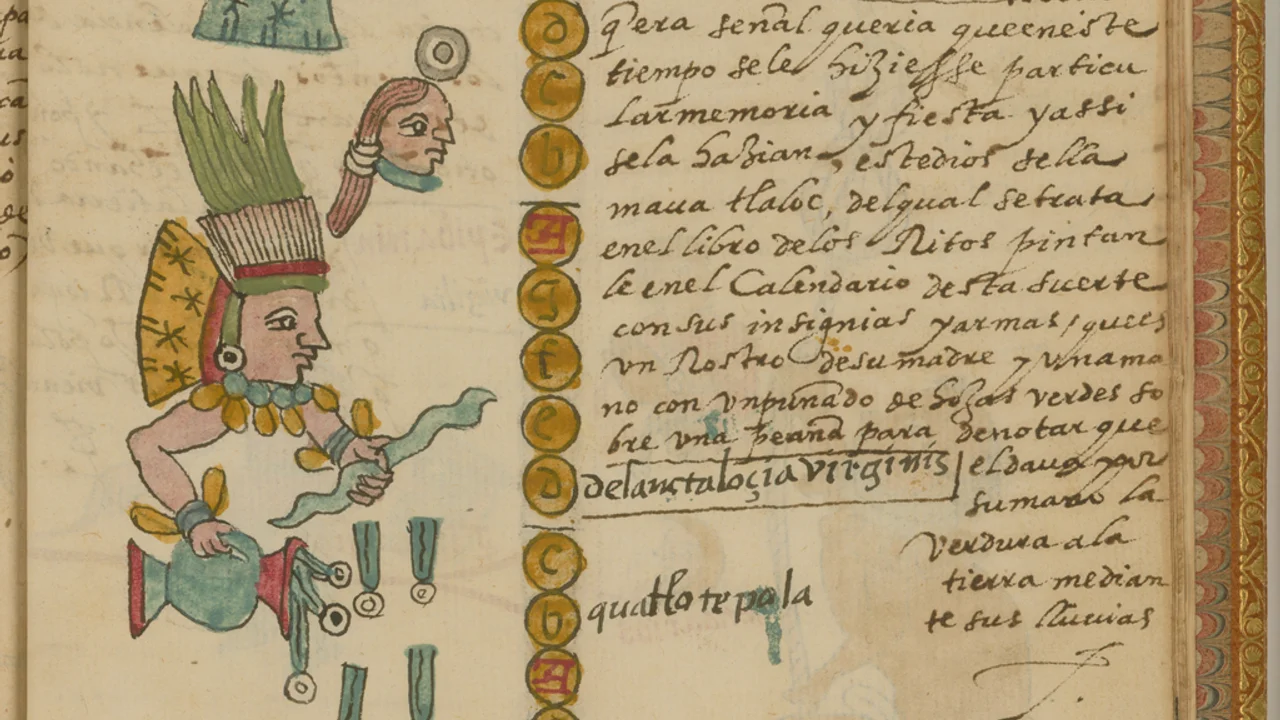 q̃ era señal queria que en este
tiempo se le hiziesse particu
lar memoria y fiesta y assi
se la hazian, este dios sella
maua tlaloc, del qual se trata
en el libro de los Ritos pintan
le en el Calendario desta suerte
con sus insignias y armas, que es
vn Rostro de su madre y vna ma
no con vn puñado de hojas verdes so
bre vna peana para denotar que
el daua por
su mano la
verdura a la
tierra median
te sus lluuias
virginis
d
c
b
A
g
f
e
d
c
b
A